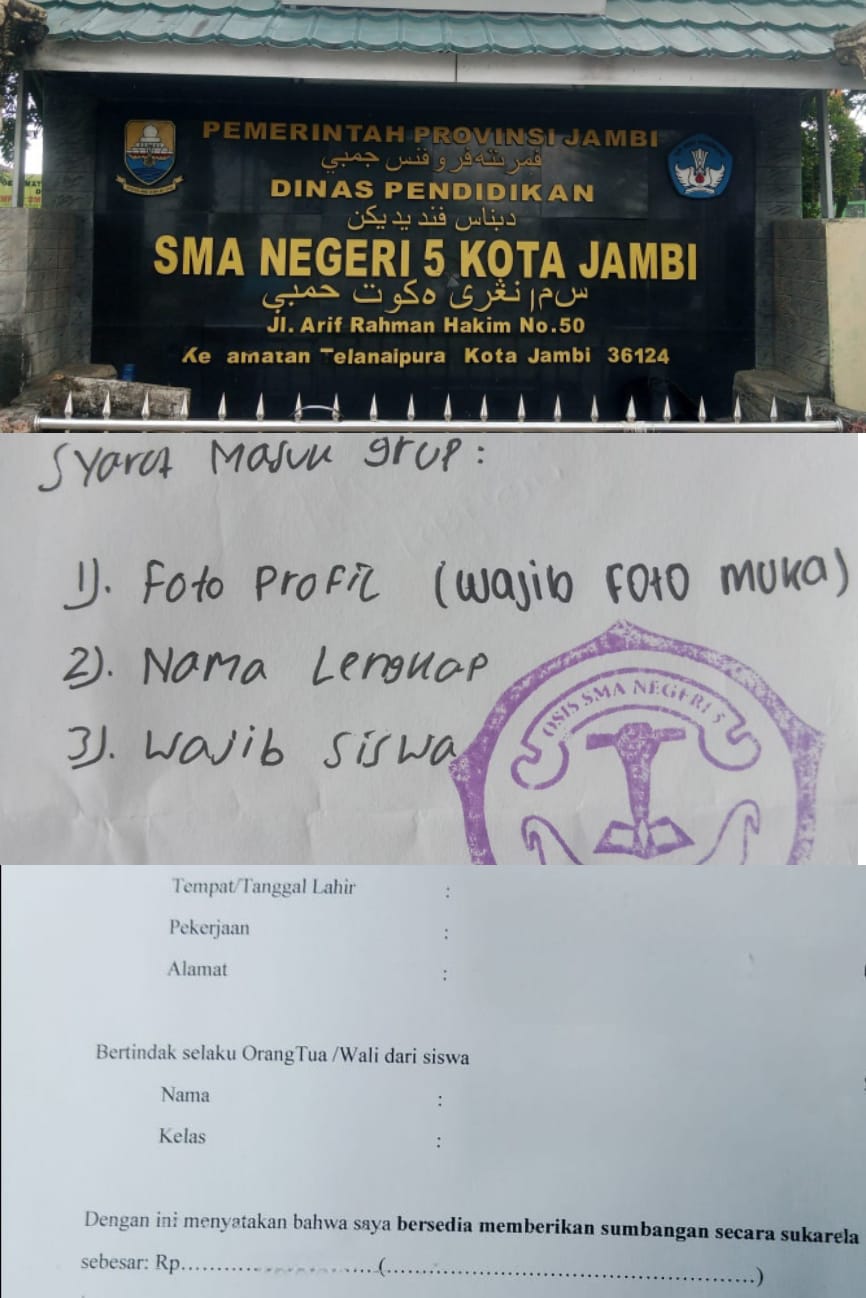 PEMERINTAH PROVINSI JAMBI
فمرينته فروفنس جمبي
DINAS PENDIDIKAN
ديناس فنديديكن
SMA NEGERI 5 KOTA JAMBI
Jl. Arif Rahman Hakim No.50
Ke amatan Telanaipura Kota Jambi 36124
Syarat Masuk grup:
1). Foto Profil (wajib Foto muka)
2). Nama Lengkap
3). Wajib siswa
OSIS SMA NEGERI 5
Tempat/Tanggal Lahir :
Pekerjaan :
Alamat :
Bertindak selaku OrangTua /Wali dari siswa
Nama :
Kelas :
Dengan ini menyatakan bahwa saya bersedia memberikan sumbangan secara sukarela
sebesar: Rp..............................(......................................................)